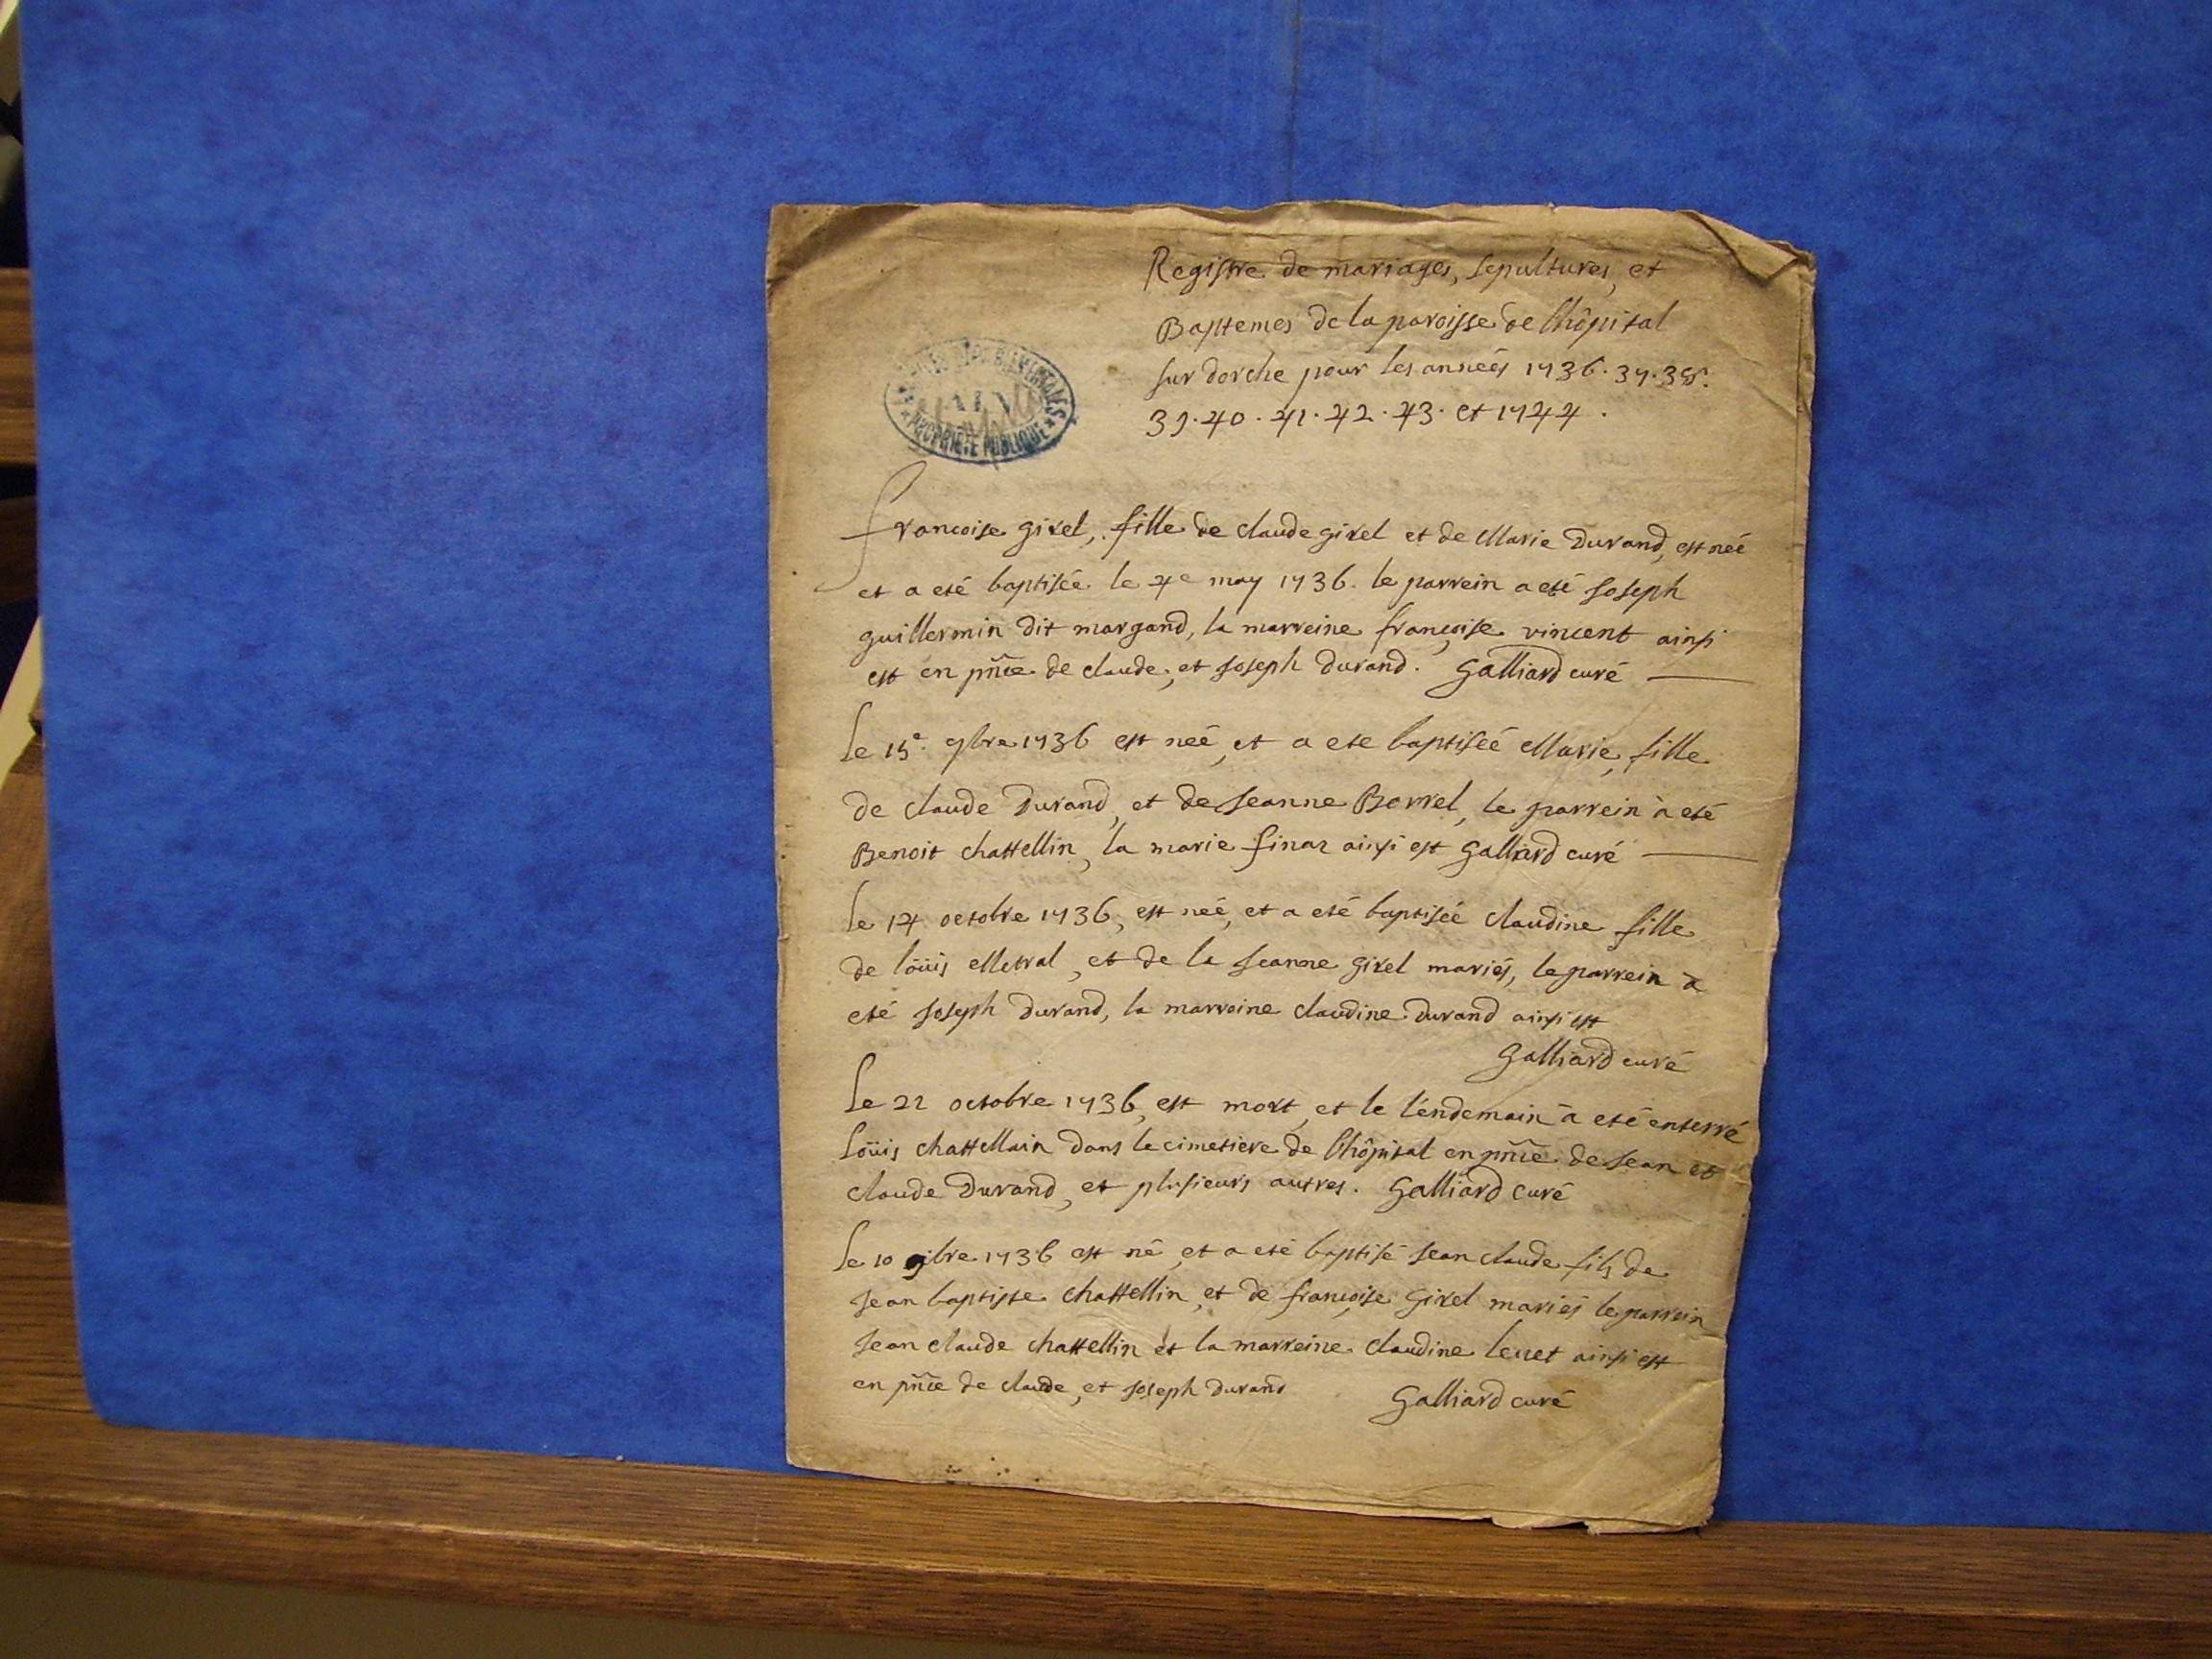 Registre de mariages, sepultures, et
Baptemes de la paroisse de l'hôpital
sur dorche pour les années 1736. 37. 38.
39. 40. 41. 42. 43. et 1744.
PROPRIETE PUBLIQUE
francoise girel, fille de claude girel et de Marie Durand, est neé
et a eté baptisée le 4e may 1736. le parrein a eté Joseph
guillermin dit margand, la marreine françoise vincent ainsi
est en pnce de claude, et Joseph Durand. Galliard curé
Le 15e. 9bre 1736 est neé, et a ete baptiseé Marie, fille
de claude Durand, et de Jeanne Borrel, le parrein à eté
Benoit chattellin, la marie finaz ainsi est Galliard curé
le 14 octobre 1736, est neé, et a eté baptisée claudine fille
de loüis Metral, et de la Jeanne girel mariés, le parrein à
eté Joseph Durand, la marreine claudine Durand ainsi est
Galliard curé
Le 22 octobre 1736, est mort, et le léndemain à eté enterré
loüis chattellain dans le cimetiere de l'hôpital en pnce de Jean et
claude Durand, et plusieurs autres. Galliard curé
le 10 9bre 1736 est né, et a eté baptisé Jean claude fils de
Jean baptiste chattellin, et de françoise girel mariés le parrein
Jean claude chattellin et la marreine claudine leuet ainsi est
en pnce de claude, et Joseph Durand Galliard curé